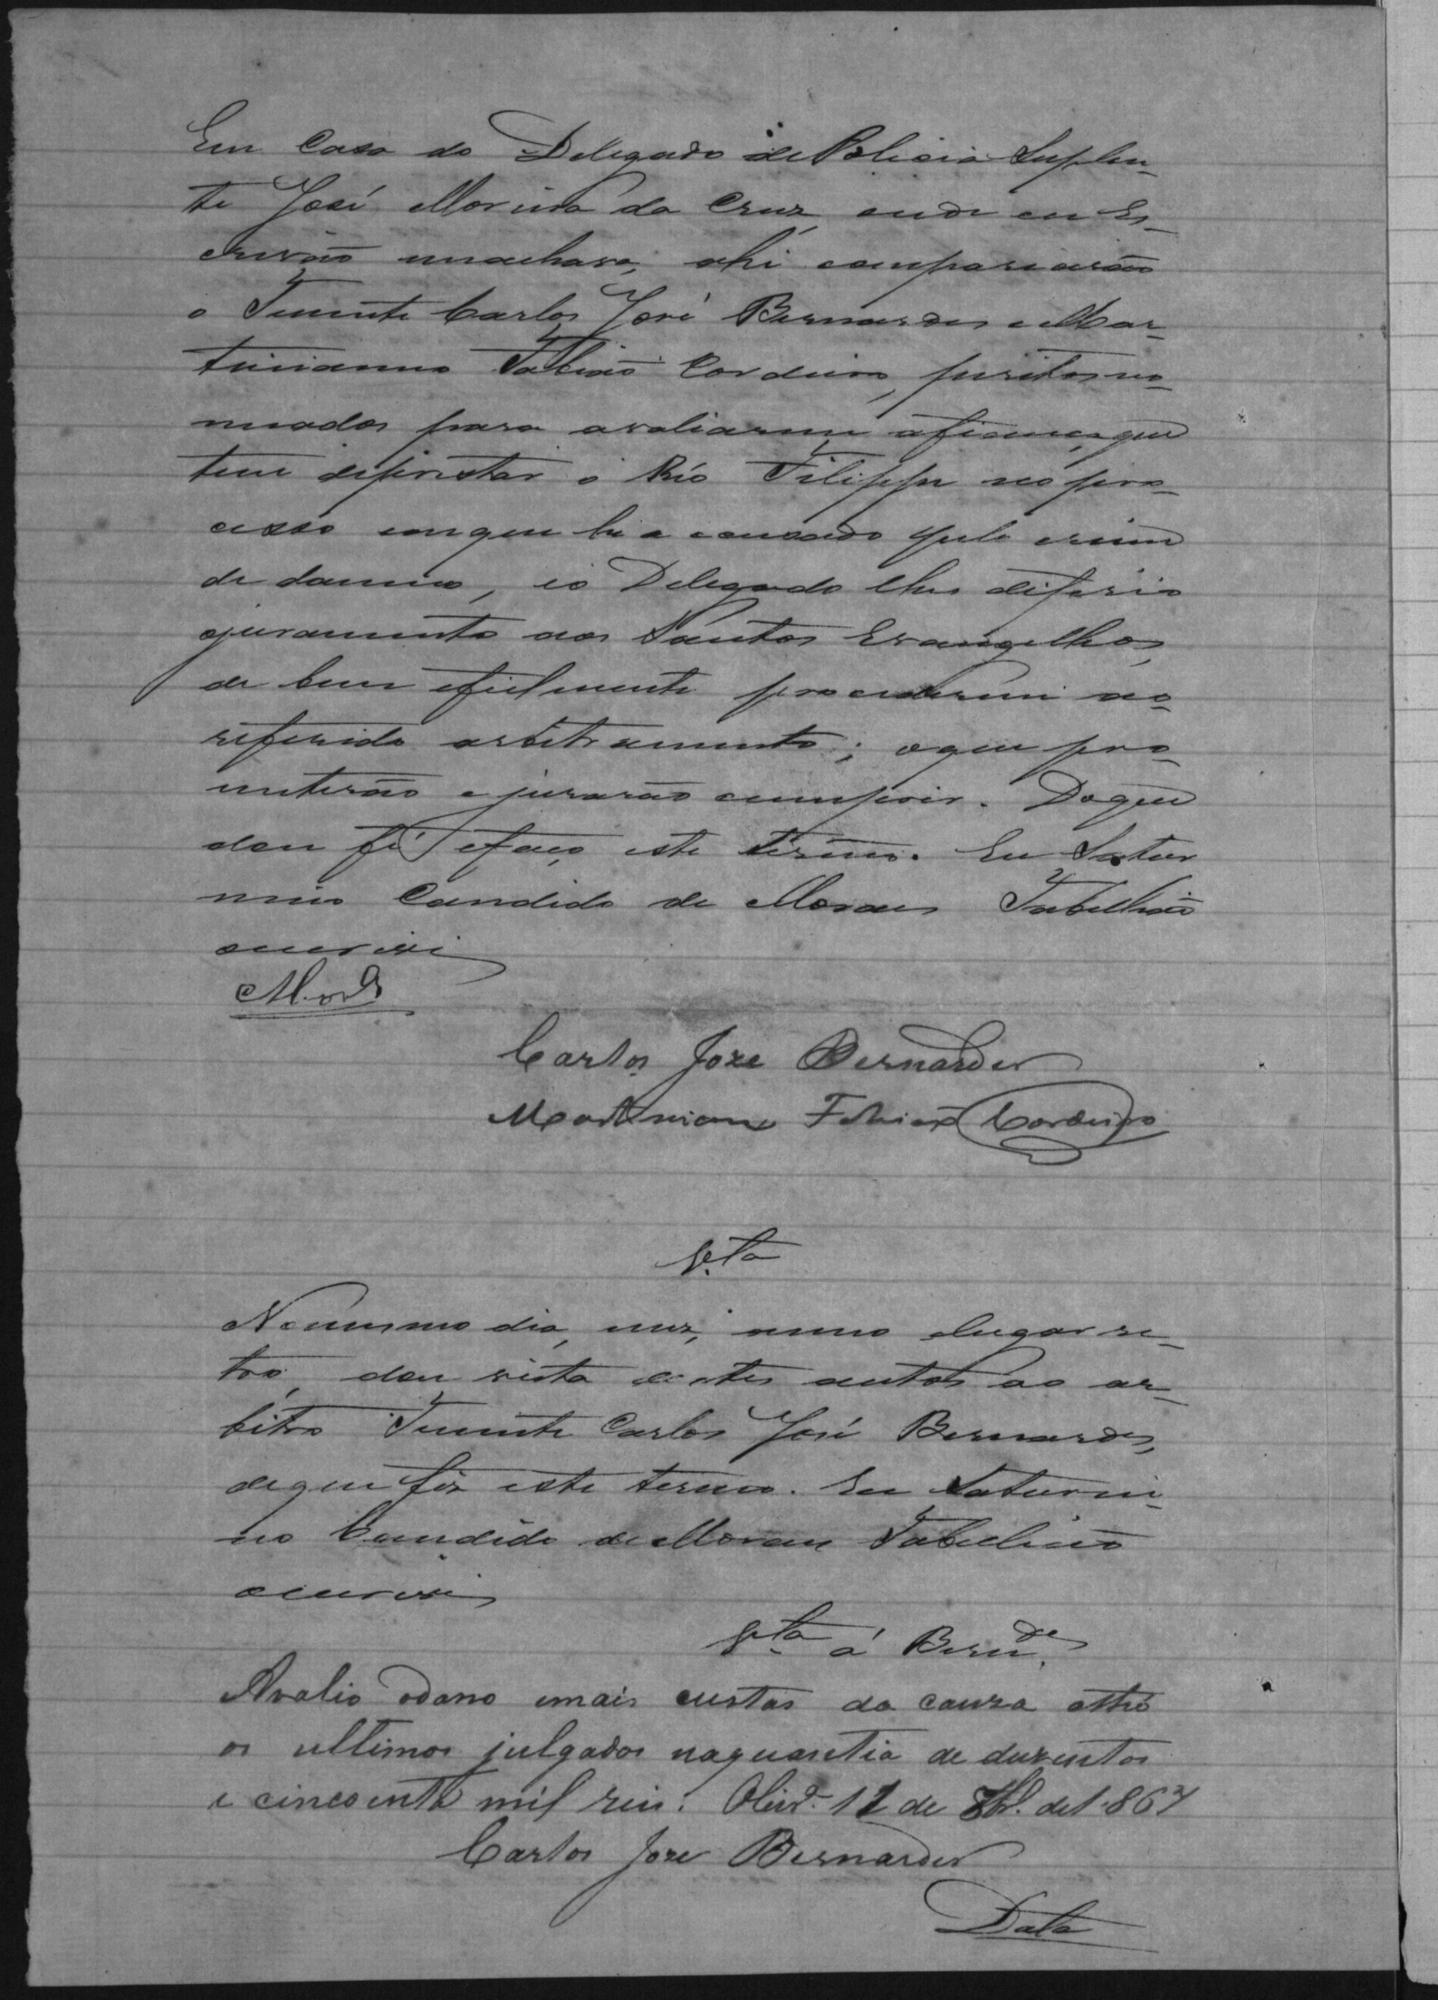 Em Casa do Delegado de Policia Suplen-
te José Moreira da Cruz, onde eu Es-
crivão me achava, ahi comparecerão
o Tenente Carlos José Bernardes e Mar-
tinianno Fabião Cordeiro, peritos no-
meados para avaliarem afiança que
tem deprestar o Réo Felippe no pro-
cesso em que he accusado pelo crime
de damno, eo Delegado lhes diferio
ojuramento aos Santos Evangelhos,
de bem efielmente procederem ao
referido arbitramento; oque pro-
meterão ejurarão cumprir. Doque
dou fé efaço este termo. Eu Satur
nino Candido de Moraes Tabellião
escrevi
Carlos Joze Bernardes
Martiniano Fabião Cordeiro
V.ta
No mesmo dia, mez, anno elugar re-
tro, dou vista destes autos ao ar-
bitro Tenente Carlos José Bernardes,
deque fiz este termo. Eu Saturni-
no Candido de Moraes Tabellião
escrevi
V.ta á Bern.des
Avalio odano emais custas da cauza athé
os ultimos julgados naquantia de duzentos
e cincoenta mil reis. Oliv.ra 12 de de 1867
Carlos Joze Bernardes
Data